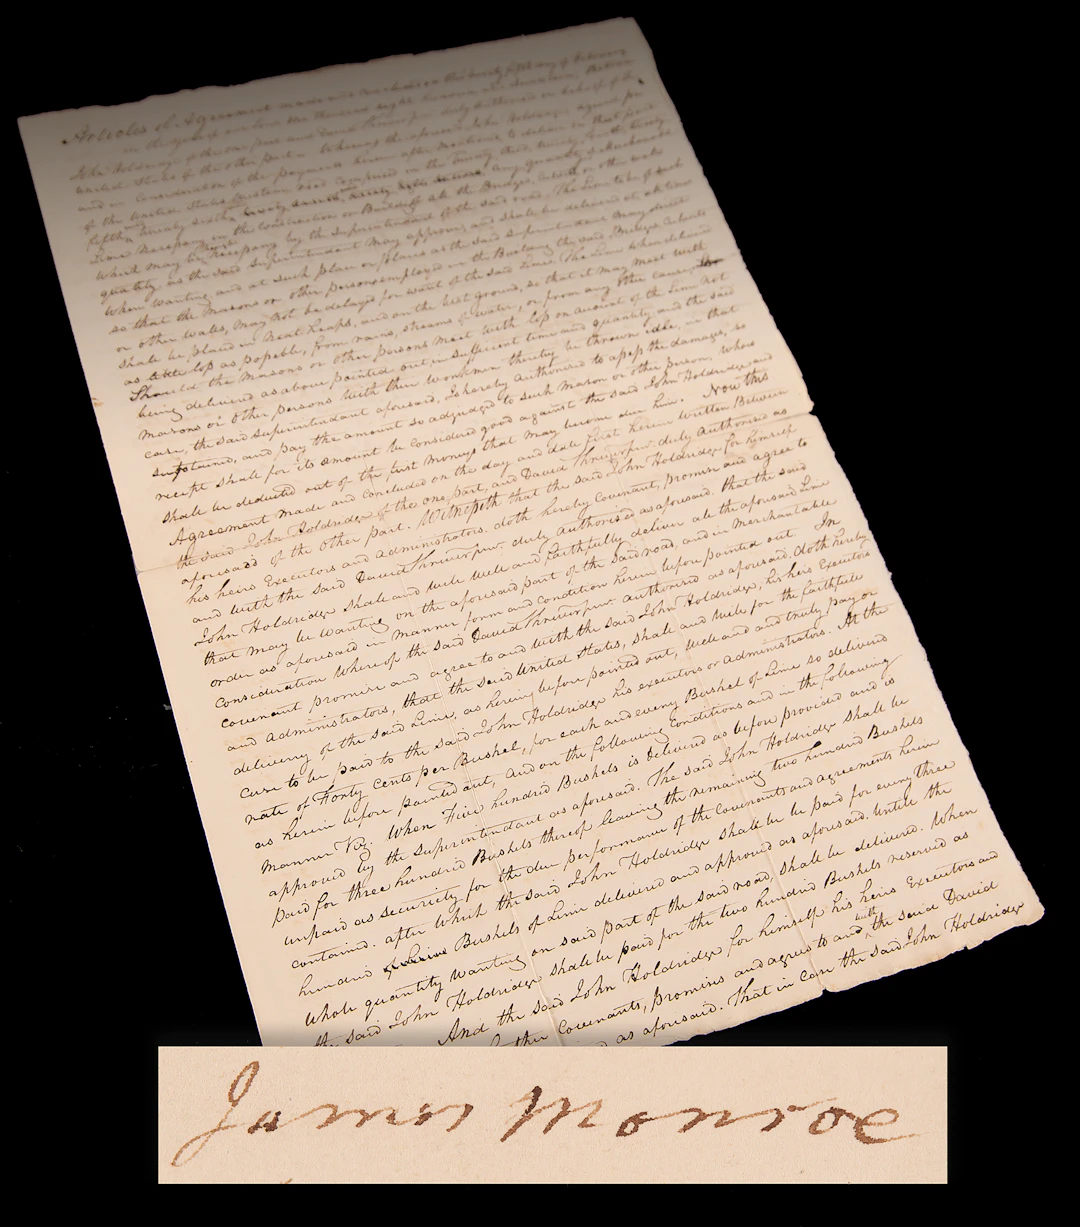 Articles of Agreement made and concluded on this twenty fifth day of February
in the year of our Lord One thousand eight hundred and Seventeen, Between
John Holdridge of the one part and David Shriver Junr. duly authorised on behalf of the
United States of the other part. Whereas the aforesaid John Holdridge, agrees for
and in Consideration of the payments herein after mentioned to deliver on that part
of the United States Western road Comprised in the twenty third, twenty fourth, twenty
fifth, and twenty sixth, twenty seventh, and twenty eighth sections, any quantity of Merchantable
Lime Necessary in the Construction or Building of all the Bridges, Culverts or other walls
which may be Necessary by the Superintendant of the said road, The Lime to be of such
quality as the said Superintendant may approve, and shall be delivered at all times
when wanting and at such place or places as the said Superintendant may direct
so that the Masons or other persons employed in the Building the said Bridges Culverts
or other walls, may not be delayed for want of the said Lime. The Lime when delivered
shall be placed in Neat heaps, and on the best ground, so that it may meet with
as little loss as possible, from rains, streams of water, or from any other cause, the
Should the Masons or other persons meet with loss on account of the Lime not
being delivered as above pointed out in sufficient time and quantity, and the said
Masons or other persons with their workmen thereby be thrown idle, in that
case, the said Superintendant aforesaid, is hereby authorised to assess the damages, so
sustained, and pay the amount so adjudged to such Mason or other person, whose
receipt shall for its amount be considered good against the said John Holdridge and
shall be deducted out of the first Moneys that may become due him. Now this
Agreement made and concluded on the day and date first herein written Between
the said John Holdridge of the one part, and David Shriver Junr. duly Authorised as
aforesaid of the other part. Witnesseth that the said John Holdridge for himself
his heirs Executors and Administrators, doth hereby Covenant, promise and agree to
and with the said David Shriver Junr. duly Authorised as aforesaid. that the said
John Holdridge shall and will well and faithfully deliver all the aforesaid Lime
that may be wanting on the aforesaid part of the said road, and in Merchantable
order as aforesaid in manner form and condition herein before pointed out. In
consideration Whereof the said David Shriver Junr. authorised as aforesaid. doth hereby
covenant promise and agree to and with the said John Holdridge, his heirs Executors
and Administrators, that the said United States, shall and will for the faithfull
delivery of the said Lime, as herein before pointed out, well and and truly pay or
cause to be paid to the said John Holdridge his executors or Administrators. At the
rate of Forty Cents per Bushel, for each and every Bushel of Lime so delivered
as herein before pointed out, and on the following Conditions and in the following
manner Viz. When Five hundred Bushels is delivered as before provided and is
approved by the Superintendant as aforesaid. The said John Holdridge shall be
paid for three hundred Bushels thereof leaving the remaining two hundred Bushels
unpaid as security for the due performance of the Covenants and agreements herein
contained. after which the said John Holdridge shall be be paid for every three
hundred Bushels of Lime delivered and approved as aforesaid. Untill the
whole quantity wanting on said part of the said road, shall be delivered. When
the said John Holdridge shall be paid for the two hundred Bushels reserved as
And the said John Holdridge for himself his heirs Executors and
other Covenants, promises and agrees to and with the said David
as aforesaid. That in Case the said John Holdridge
James Monroe